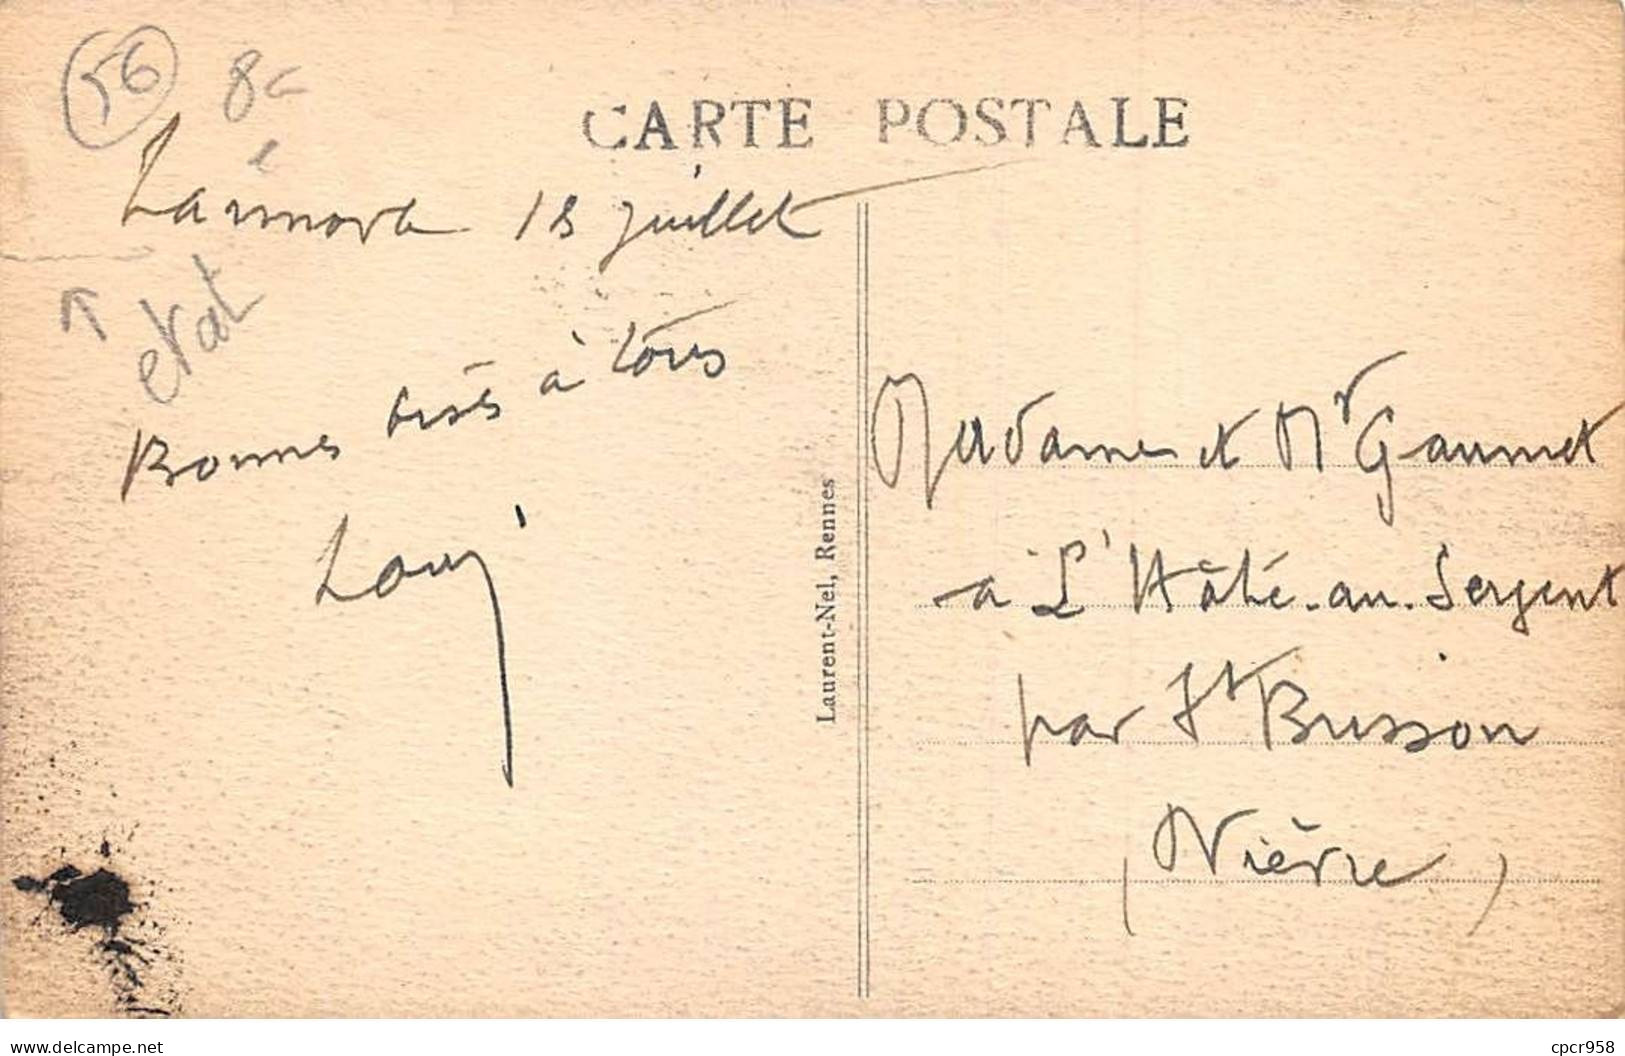 56 8€
CARTE POSTALE
Larmor 18 juillet
état
Bonnes bises à tous
Louis
Laurent-Nel, Rennes
Madame et Mr Gaumet
à L'Hâte-au-Sergent
par St Brisson
(Nièvre)
www.delcampe.net
cpcr958